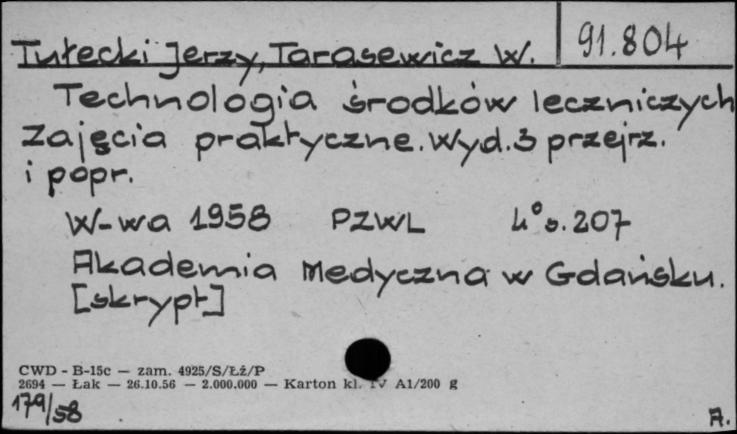 91.804
Tułecki Jerzy, Tarasewicz W.
Technologia środków leczniczych
Zajęcia praktyczne. Wyd. 3 przejrz.
i popr.
W-wa 1958 PZWL 4° s. 207
Akademia Medyczna w Gdańsku.
[skrypt]
CWD - B-15c — zam. 4925/S/Łż/P
2694 — Łak — 26.10.56 — 2.000.000 — Karton kl. IV A1/200 g
179/58
A.